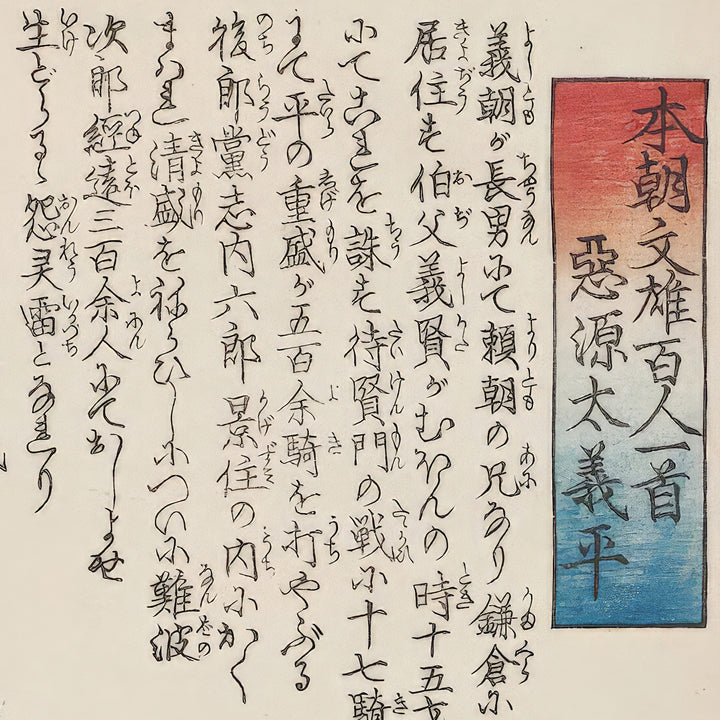 本朝文雄百人一首
惡源太義平
義朝が長男にて頼朝の兄なり鎌倉に
居住す伯父義賢がむほんの時十五才
にてこれを誅す待賢門の戦に十七騎
にて平の重盛が五百余騎を打やぶる
後郎黨志内六郎景住の内にかく
まはれ清盛をねらひしにつひに難波
次郎經遠三百余人にておしよせ
生どらるゝ怨灵雷となれり